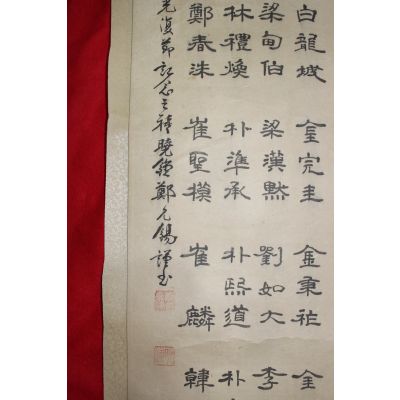 白龍城 金完圭 金秉祚 金
梁甸伯 梁漢默 劉如大 李
林禮煥 朴準承 朴熙道 朴
鄭春洙 崔聖模 崔麟 韓
光復節記念之 曉 鄭 錫謹書